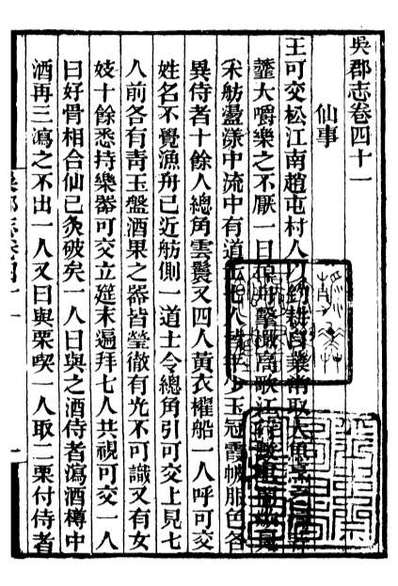 吳郡志卷四十一
仙事
王可交松江南趙屯村人以釣耕自業取大魚烹之
虀大嚼樂之不厭一日舟擊檝高歌江行數里
采舫盪漾中流中有道士七人少玉冠霞帔服色各
異侍者十餘人總角雲鬟又四人黃衣櫂船一人呼可交
姓名不覺漁舟已近舫側一道士令總角引可交上見七
人前各有靑玉盤酒果之器皆瑩徹有光不可識又有女
妓十餘悉持樂器可交立筵末遍拜七人共視可交一人
曰好骨相合仙已灸破矣一人曰與之酒侍者瀉酒樽中
酒再三瀉之不出一人又曰與栗喫一人取二栗付侍者